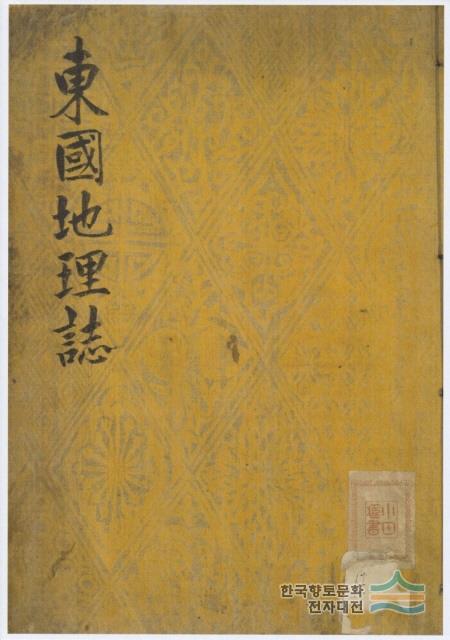 東國地理誌
한국향토문화
전자대전